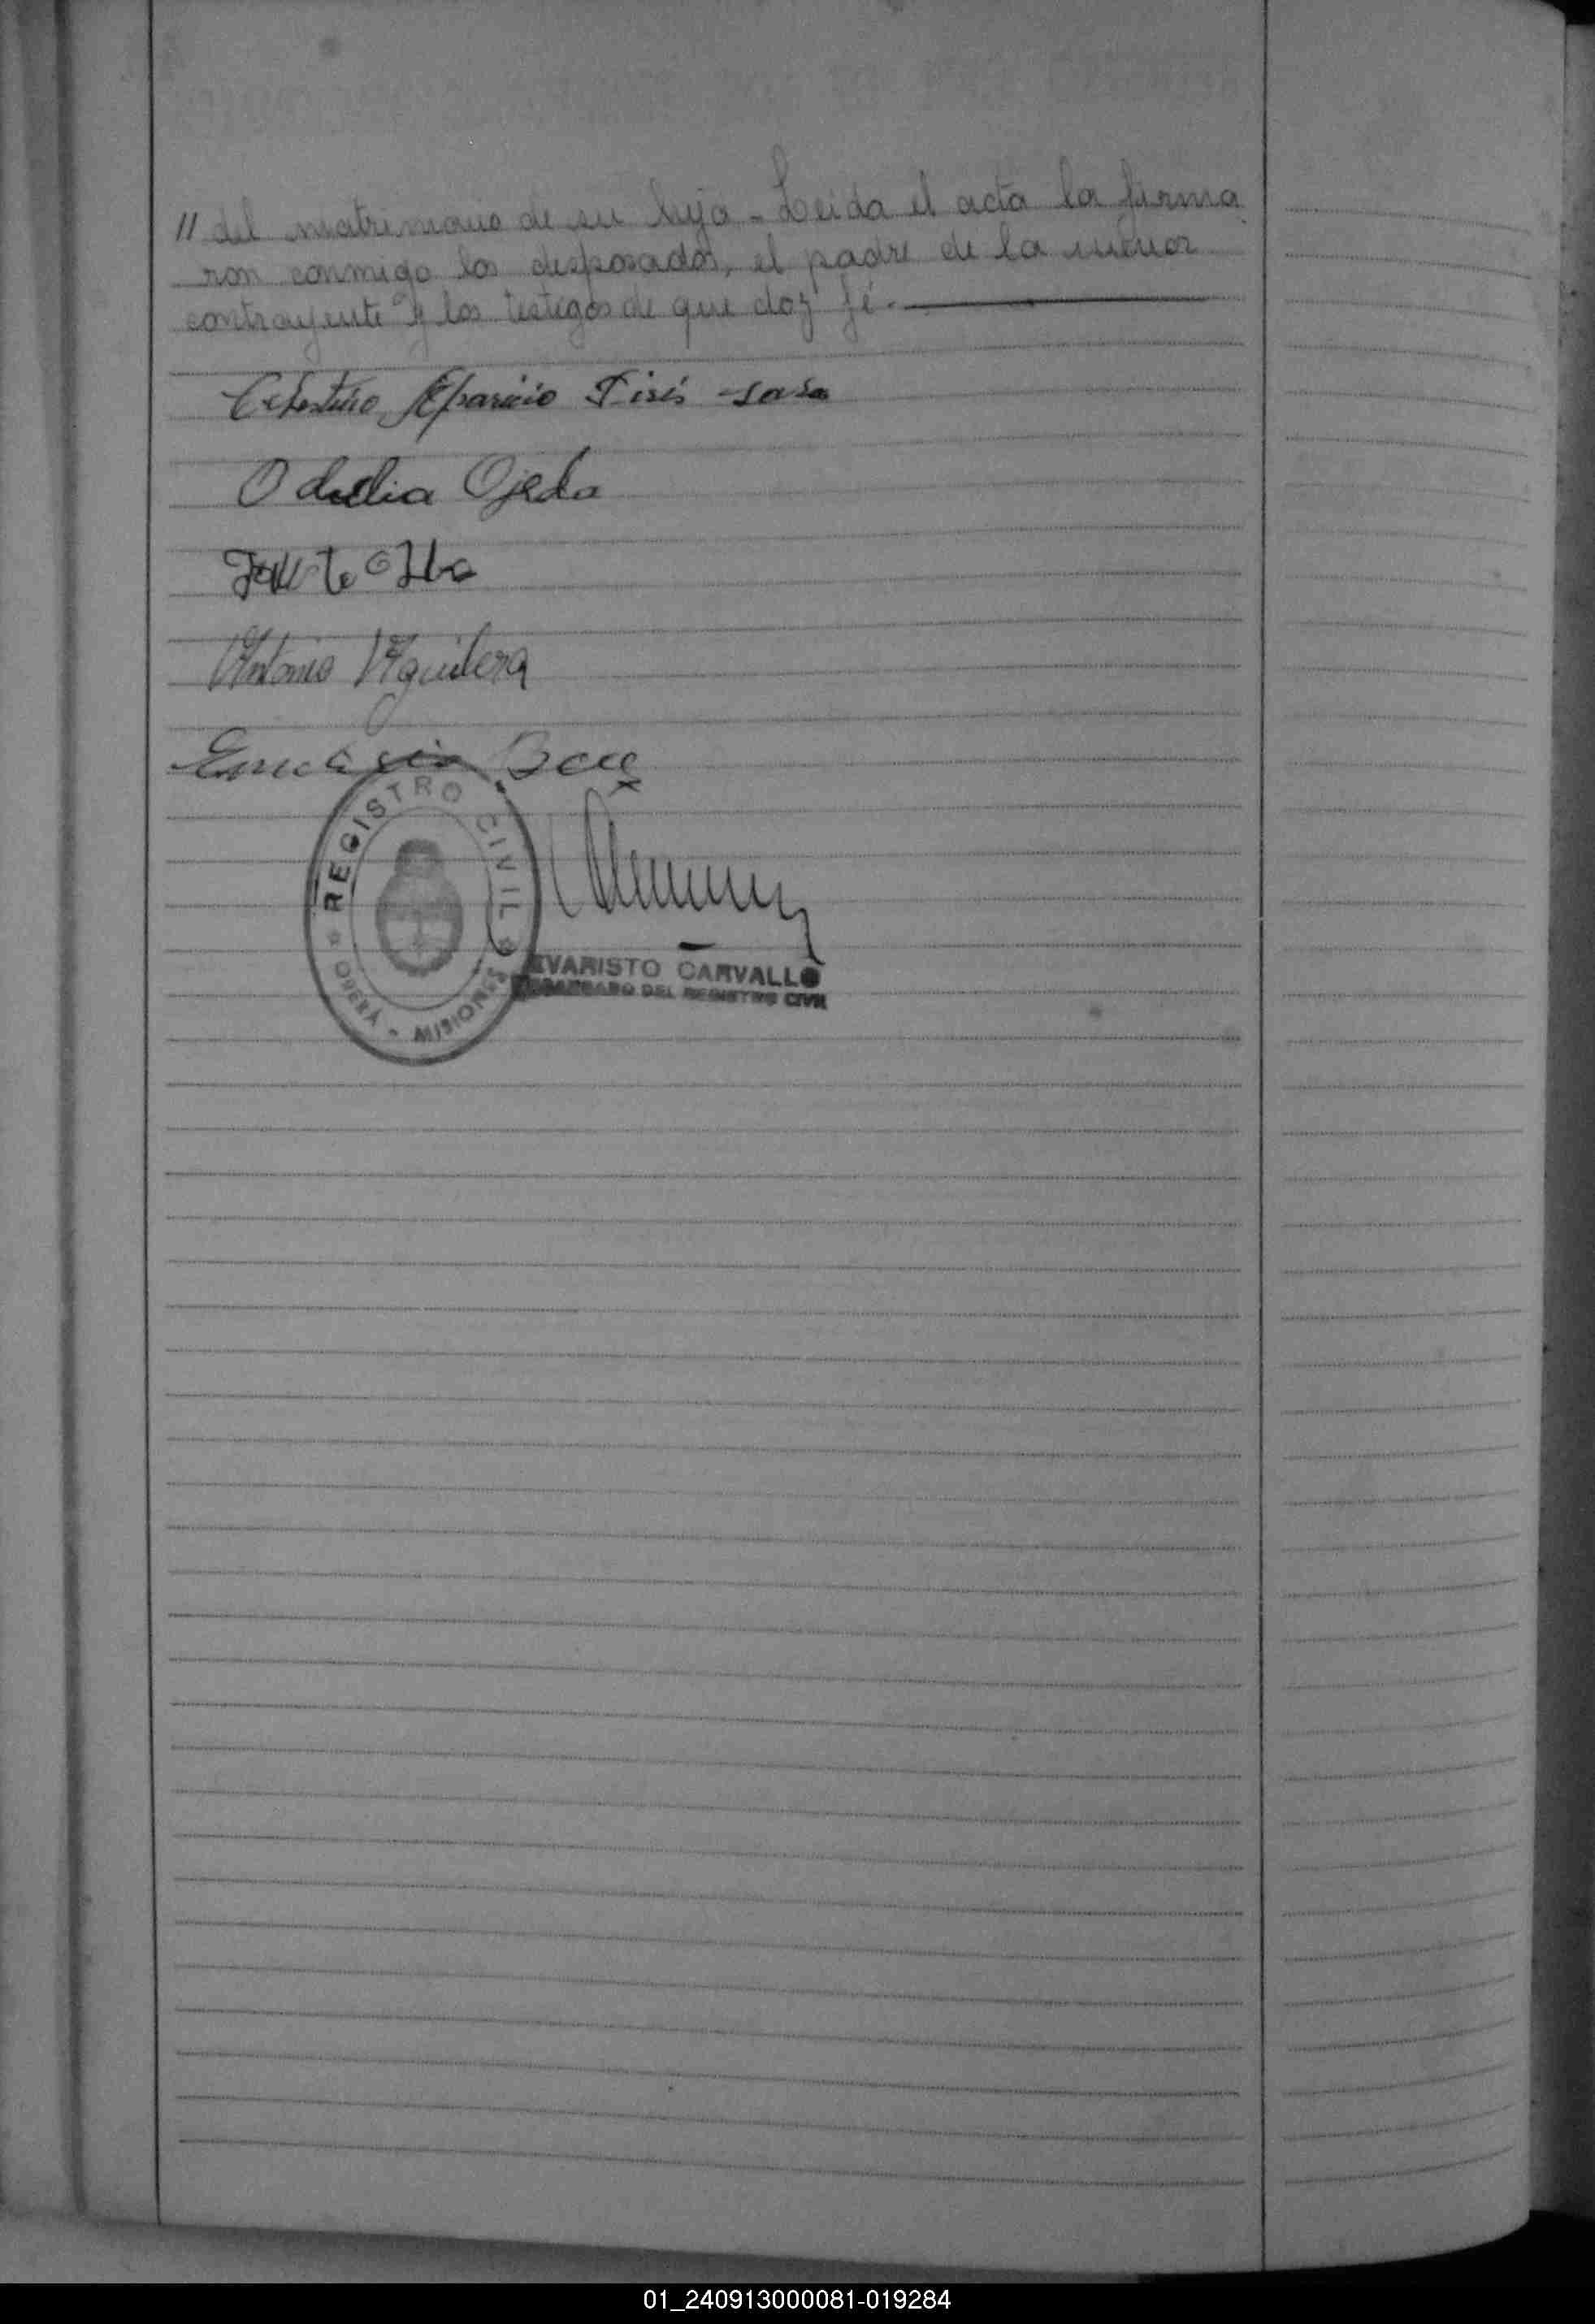 // del matrimonio de su hija - Leida el acta la firma
ron conmigo los desposados, el padre de la menor
contrayente y los testigos de que doy fé.
Celestino Aparicio
Odulia Ojeda
Antonio Aguilera
REGISTRO CIVIL
OBERÁ - MISIONES
EVARISTO CARVALLO
ENCARGADO DEL REGISTRO CIVIL
01_240913000081-019284